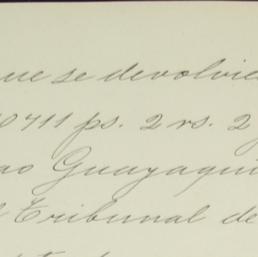 que se devolvie
0711 ps. 2 rs. 2
ao Guayaqui
l Tribunal de